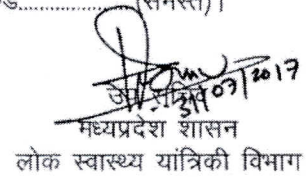 (समस्त)।
31/07/2017
मध्यप्रदेश शासन
लोक स्वास्थ्य यांत्रिकी विभाग